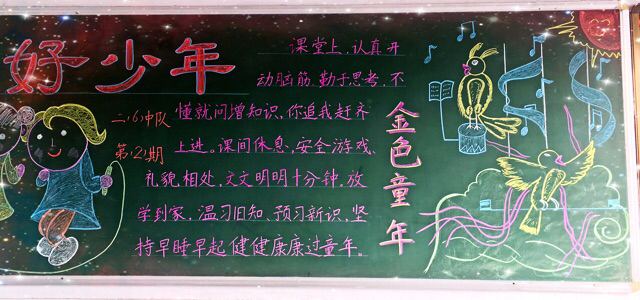 好少年
二(6)中队
第(2)期
课堂上,认真开
动脑筋,勤于思考,不
懂就问增知识,你追我赶齐
上进。课间休息,安全游戏,
礼貌相处,文文明明十分钟,放
学到家,温习旧知、预习新识,坚
持早睡早起健健康康过童年。
金色童年